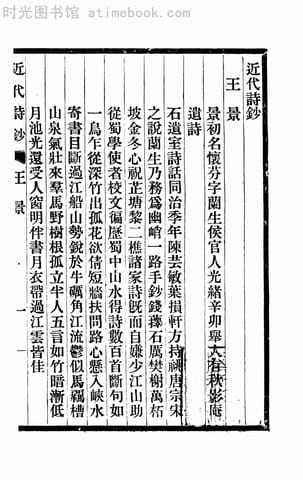 时光图书馆 atimebook.com
近代詩鈔
王景
景初名懷芬字蘭生侯官人光緒辛卯舉人有秋影庵
遺詩
石遺室詩話同治季年陳芸敏葉損軒方持祧唐宗宋
之說蘭生乃務爲幽峭一路手鈔錢蘀石厲樊榭萬柘
坡金冬心祝芷塘黎二樵諸家詩旣而自嫌少江山助
從蜀學使者校文徧歷蜀中山水得詩數百首斷句如
一鳥乍從深竹出孤花欲倩短牆扶問路心懸入峽水
寄書目斷過江船山勢銳於牛礪角江流鬱似馬羈槽
山泉氣壯來羣馬野樹根孤立半人五言如竹暗漸低
月池光還受人窗明伴書月衣帶過江雲皆佳
近代詩鈔 王景 一